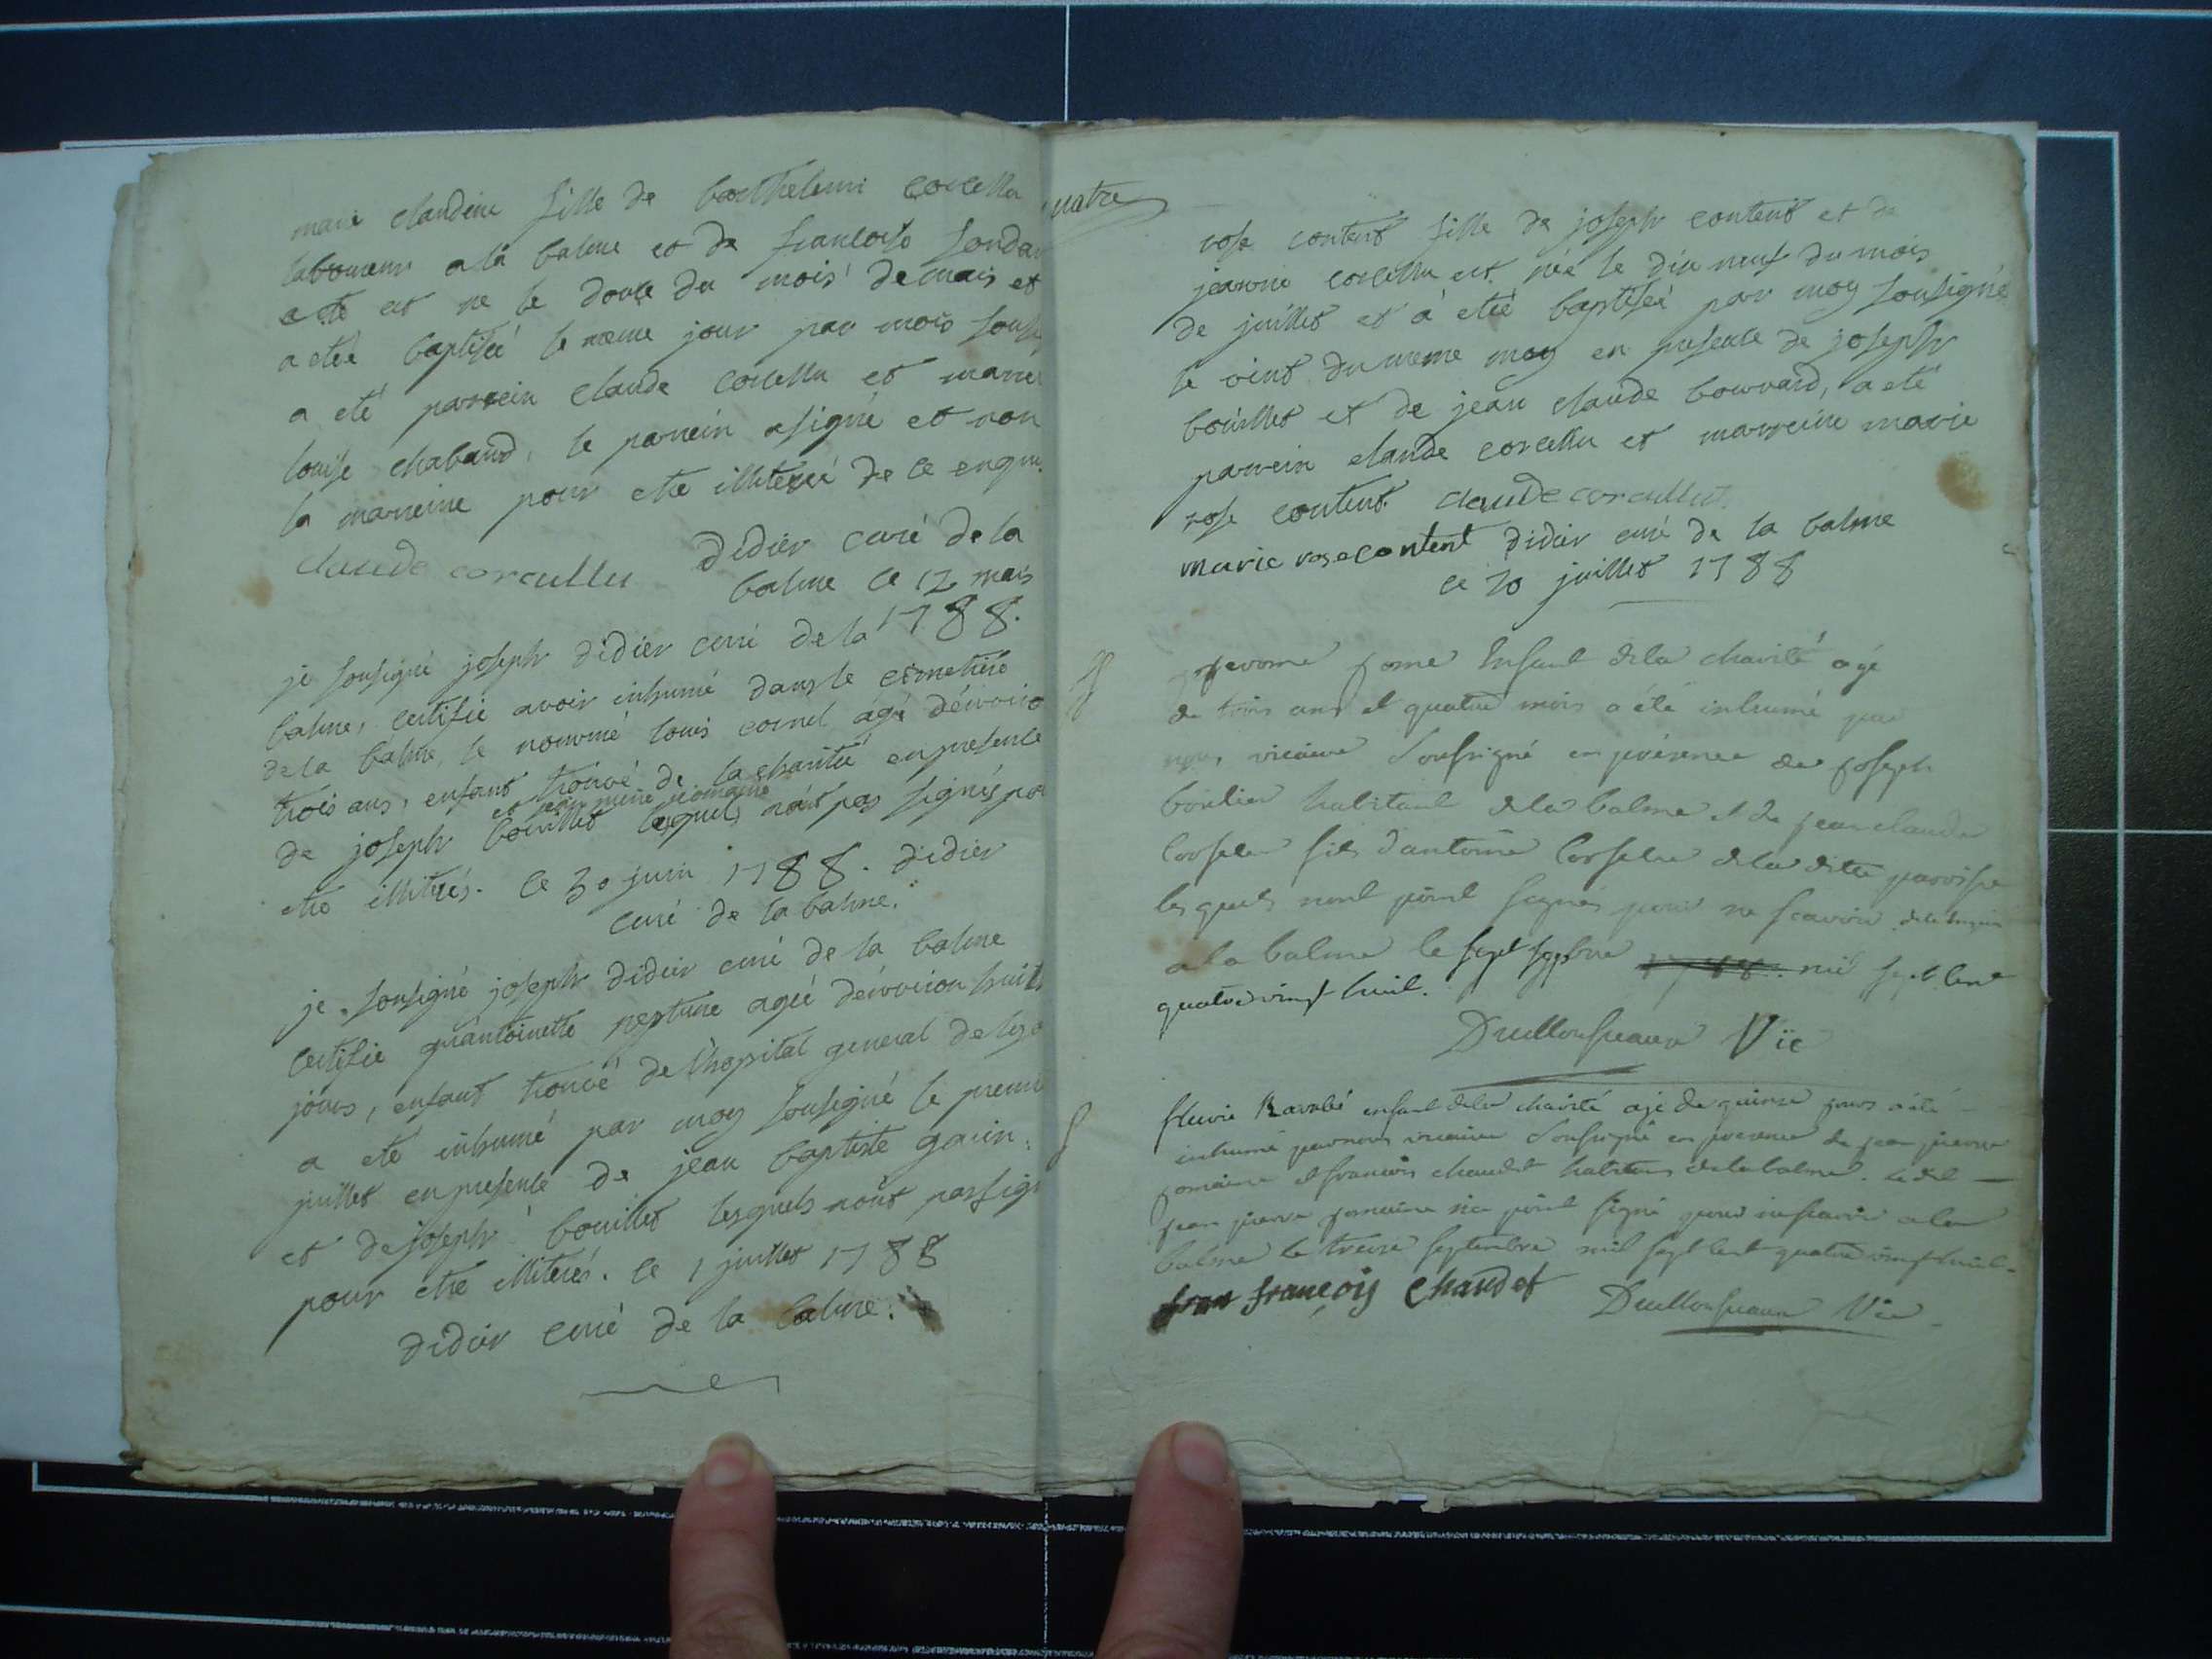 marie claudine fille de barthelemi corcellu
laboureur a la balme et de francoise
a été est ne le douze du mois de mars et
a eteé baptiseé le meme jour par mois
a eté parrein claude corcellu et marrei
louise chabaud, le parrein a signé et non
la marreine pour etre illiteré de ce enqui
claude corcullu didier curé de la
balme ce 12 mars
1788.
je sousigné joseph didier curé de la
balme, certifie avoir inhumé dans le cimetiere
de la balme, le nommé louis cornel agé d'eiroiro
trois ans, enfant trouvé de la charité en presence
et jean
de joseph bouillet lesquels n'ont pas signés pou
etre illiterés. ce 30 juin 1788. didier
curé de la balme.
je sousigné joseph didier curé de la balme
certifie qu'antoinette neptune ageé d'eiroiron huit
jours, enfant trouvé de l'hopital general de
a eté inhumé par moy sousigné le premi
juillet en presence de jean baptiste garin
et de joseph bouillet lesquels n'ont pas sign
pour etre illiterés. ce 1 juillet 1788
didier curé de la balme.
uatre
rose content fille de joseph content et de
jeanne corcellu est neé le dix neuf du mois
de juillet et à eteé baptiseé par moy sousigné
le vint du meme moy en presence de joseph
bouillet et de jean claude bouvard, a eté
parrein claude corcellu et marreine marie
rose content claude corcullu
marie rose content didier curé de la balme
ce 20 juillet 1788
jerome enfant de la charité agé
de trois ans et quatre mois a été inhumé par
nous, vicaire soussigné en présence de joseph
boulier habitant de la balme et de jean claude
corselu fils d'antoine corselu de la ditte paroisse
lesquels n'ont point signés pour ne scavoir
a la balme le sept sepbre 1788. mil sept cent
quatre vingt huit.
Vic
fleurie enfant de la charité agé de quinze jours a été
inhumé par nous vicaire soussigné en presence de jean pierre
et francois chaudet habitans de la balme. Le dit
jean pierre n'a point signé pour
balme le treize septembre mil sept cent quatre vingt huit.
françois Chaudet Vic